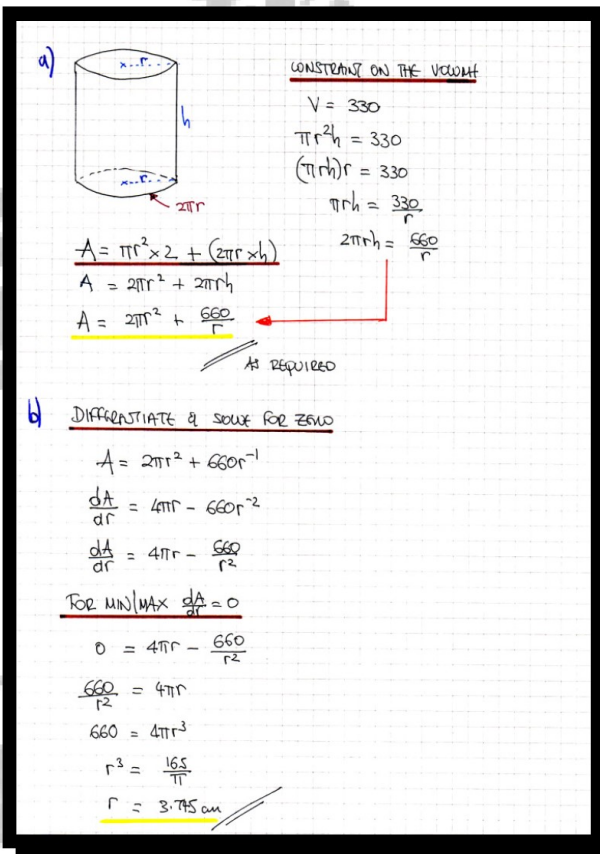 a)
r
h
r
2πr
CONSTRAINT ON THE VOLUME
V = 330
πr²h = 330
(πrh)r = 330
πrh = 330/r
2πrh = 660/r
A = πr² × 2 + (2πr × h)
A = 2πr² + 2πrh
A = 2πr² + 660/r
AS REQUIRED
b) DIFFERENTIATE & SOLVE FOR ZERO
A = 2πr² + 660r⁻¹
dA/dr = 4πr - 660r⁻²
dA/dr = 4πr - 660/r²
FOR MIN/MAX dA/dr = 0
0 = 4πr - 660/r²
660/r² = 4πr
660 = 4πr³
r³ = 165/π
r = 3.745 cm